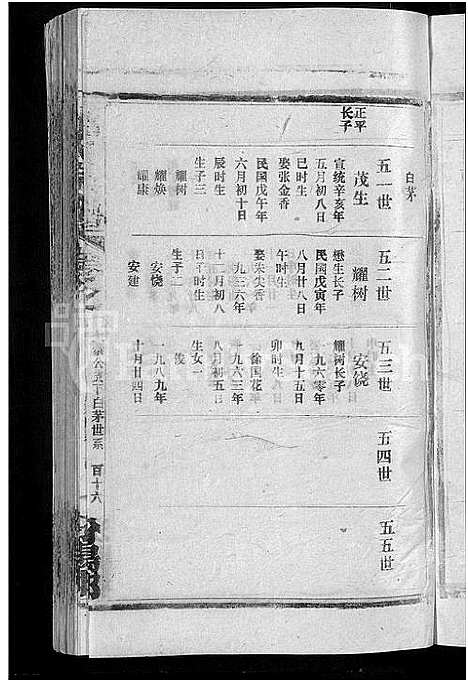 白茅
五一世
正平
长子
茂生
宣统辛亥年
五月初八日
巳时生
娶张金香
民国戊午年
六月初十日
辰时生
生子三
耀树
耀焕
耀康
五二世
耀树
懋生长子
民国戊寅年
八月廿八日
午时生
娶朱尖香
一九三六年
十二月初八
日子时生
生子二
安饶
安建
五三世
安饶
耀树长子
一九六零年
九月十五日
卯时生
娶徐国花
一九六三年
八月初五日
生女一
浅
一九八九年
十月廿四日
五四世
五五世
公支下白茅世系
百十六